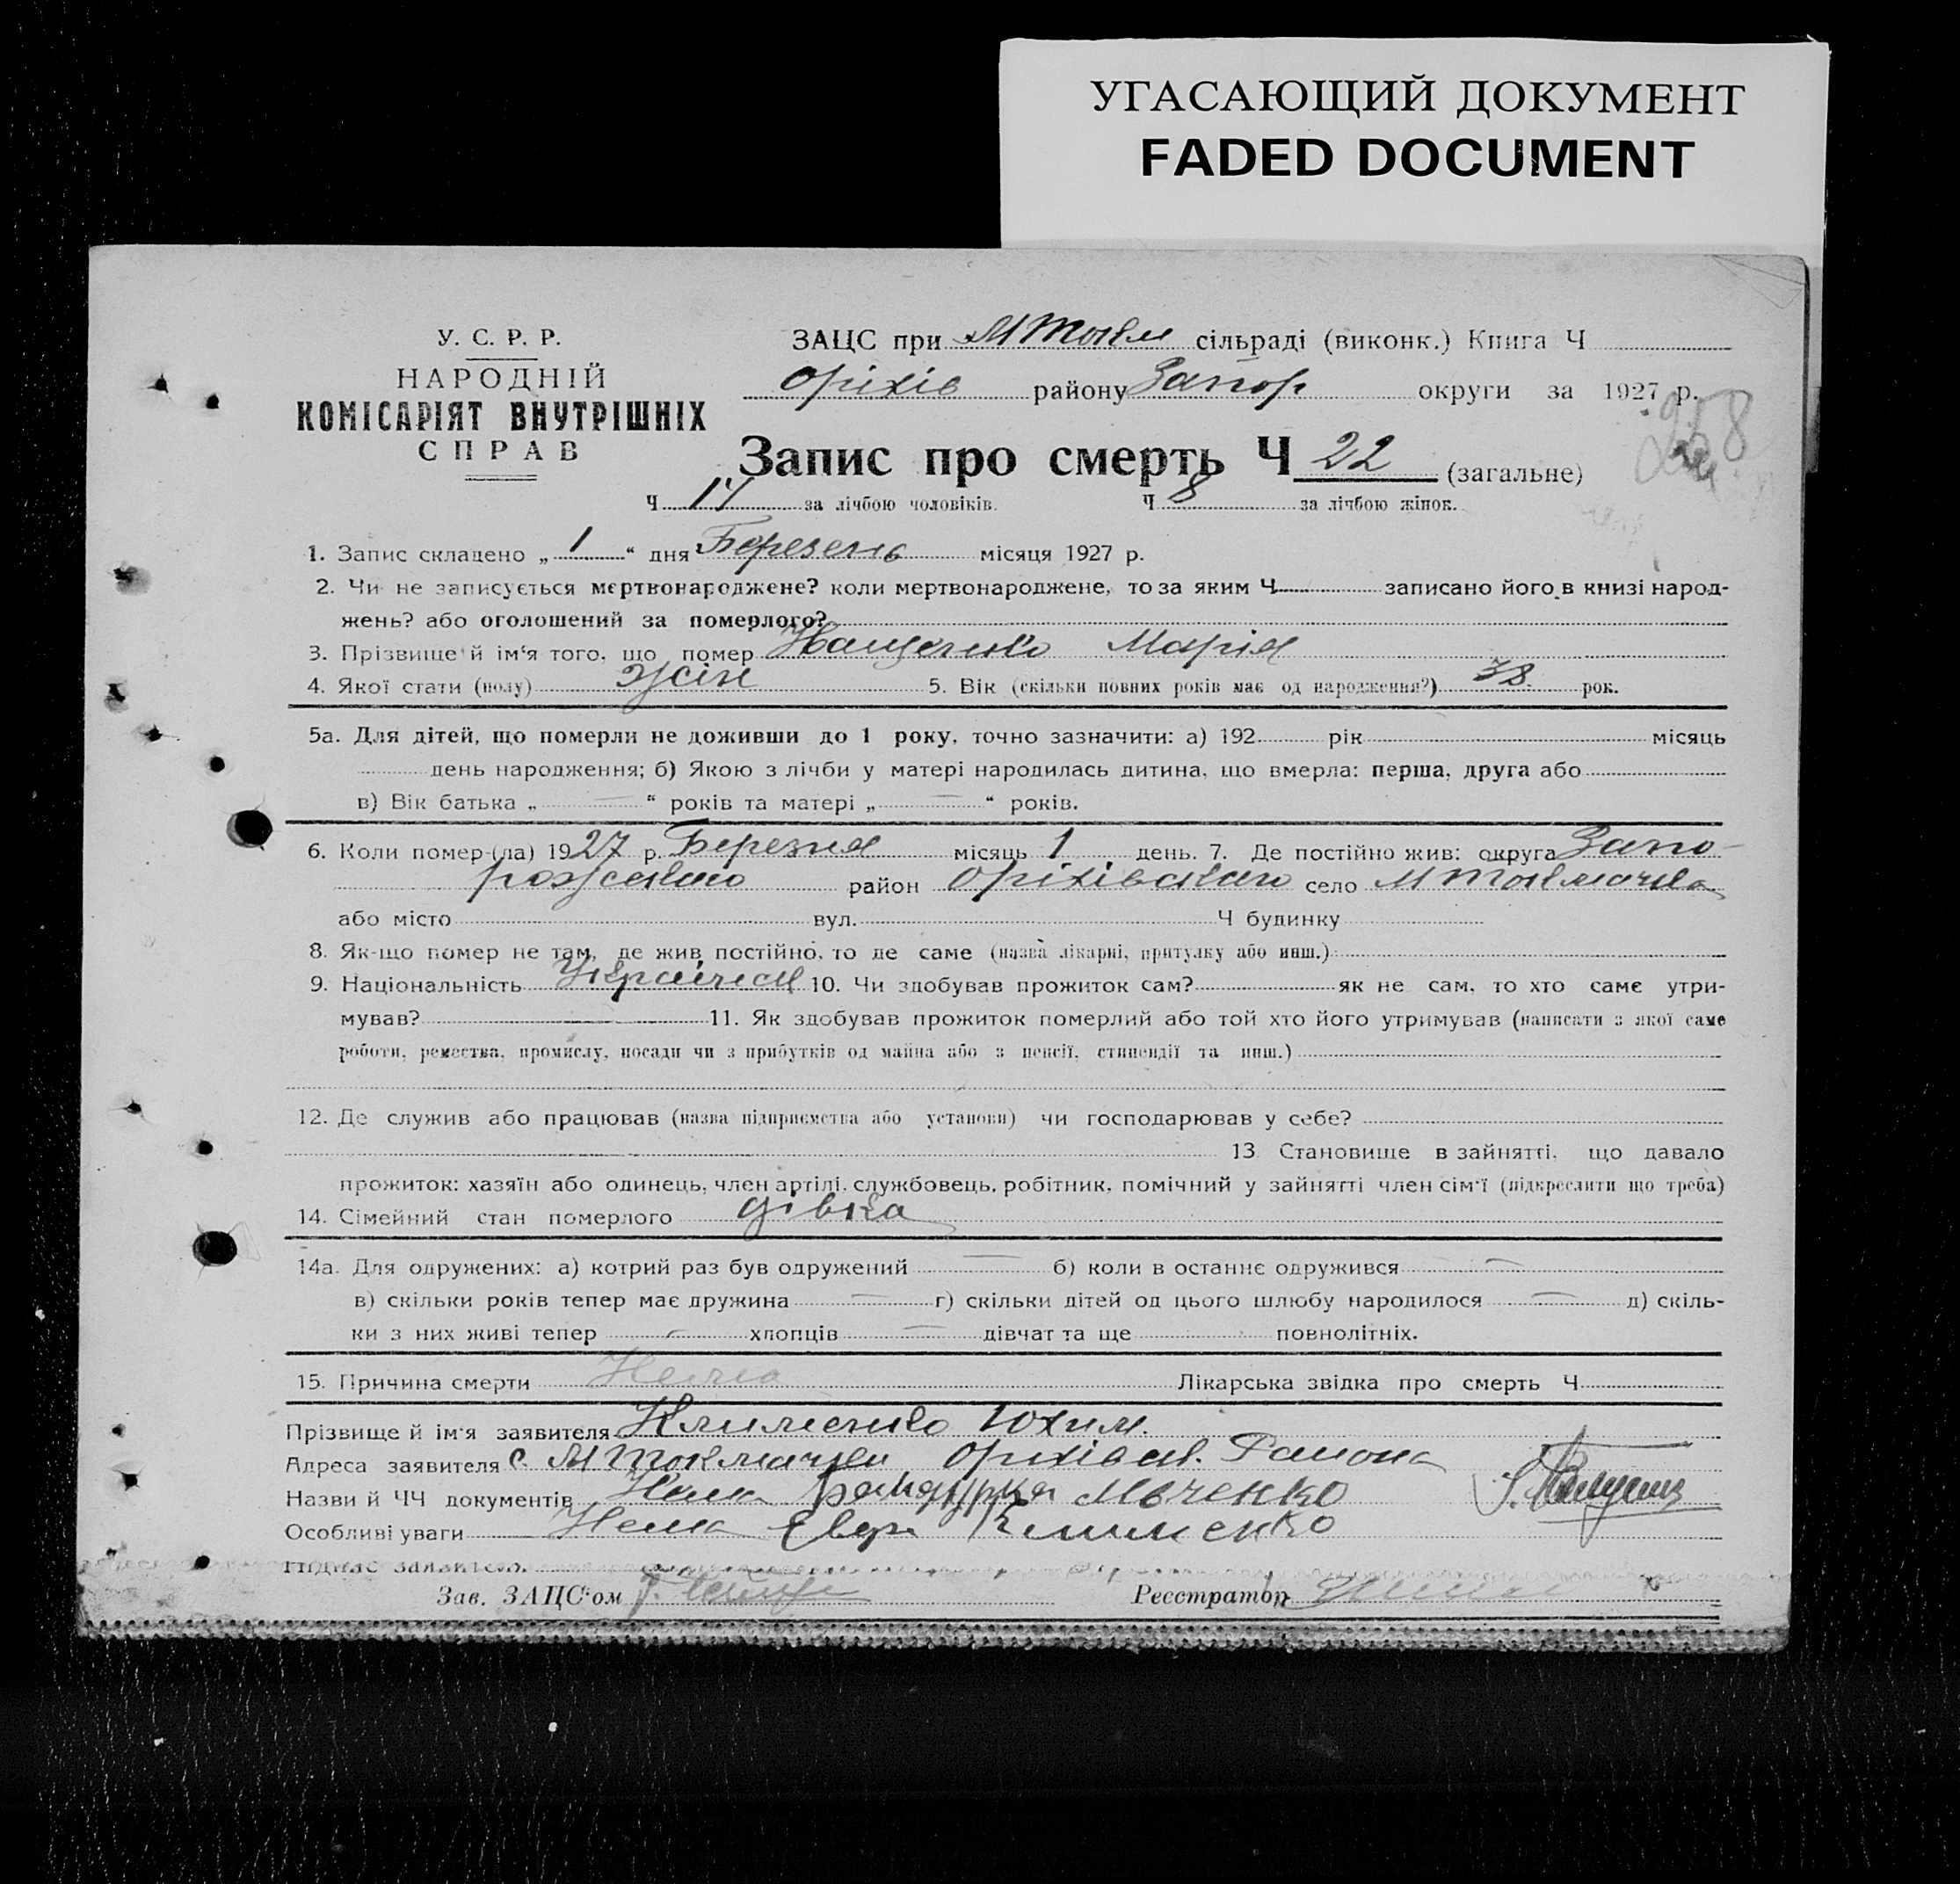 УГАСАЮЩИЙ ДОКУМЕНТ
FADED DOCUMENT
У. С. Р. Р.
НАРОДНІЙ
КОМІСАРІЯТ ВНУТРІШНІХ
СПРАВ
ЗАЦС при М Токм сільраді (виконк.) Книга Ч
Оріхів району Запор округи за 1927 р.
Запис про смерть Ч 22 (загальне)
Ч 14 за лічбою чоловіків. Ч 8 за лічбою жінок.
1. Запис складено „ 1 “ дня Березень місяця 1927 р.
2. Чи не записується мертвонароджене? коли мертвонароджене, то за яким Ч записано його в книзі народ-
жень? або оголошений за померлого?
3. Прізвище й ім‘я того, що помер Марія
4. Якої стати (полу) жін 5. Вік (скільки повних років має од народження?) 38 рок.
5а. Для дітей, що померли не доживши до 1 року, точно зазначити: а) 192 рік місяць
день народження; б) Якою з лічби у матері народилась дитина, що вмерла: перша, друга або
в) Вік батька „ — “ років та матері „ — “ років.
6. Коли помер-(ла) 1927 р. Березня місяць 1 день. 7. Де постійно жив: округа Запо-
район село М Токмачка
або місто вул. Ч будинку
8. Як-що помер не там, де жив постійно, то де саме (назва лікарні, притулку або инш.)
9. Національність 10. Чи здобував прожиток сам? як не сам, то хто саме утри-
мував? 11. Як здобував прожиток померлий або той хто його утримував (написати з якої саме
роботи, ремества, промислу, посади чи з прибутків од майна або з пенсії, стипендії та инш.)
12. Де служив або працював (назва підприємства або установи) чи господарював у себе?
13 Становище в зайнятті, що давало
прожиток: хазяїн або одинець, член артілі, службовець, робітник, помічний у зайнятті член сім‘ї (підкреслити що треба)
14. Сімейний стан померлого дівка
14а. Для одружених: а) котрий раз був одружений — б) коли в останнє одружився —
в) скільки років тепер має дружина — г) скільки дітей од цього шлюбу народилося — д) скіль-
ки з них живі тепер — хлопців — дівчат та ще повнолітніх.
15. Причина смерти Лікарська звідка про смерть Ч
Прізвище й ім‘я заявителя Клименко Юхим.
Адреса заявителя с. М Токмачки Оріхівськ. Района
Назви й ЧЧ документів Нема
Особливі уваги Нема Клименко
Підпис заявителя.
Зав. ЗАЦС‘ом Реєстратор